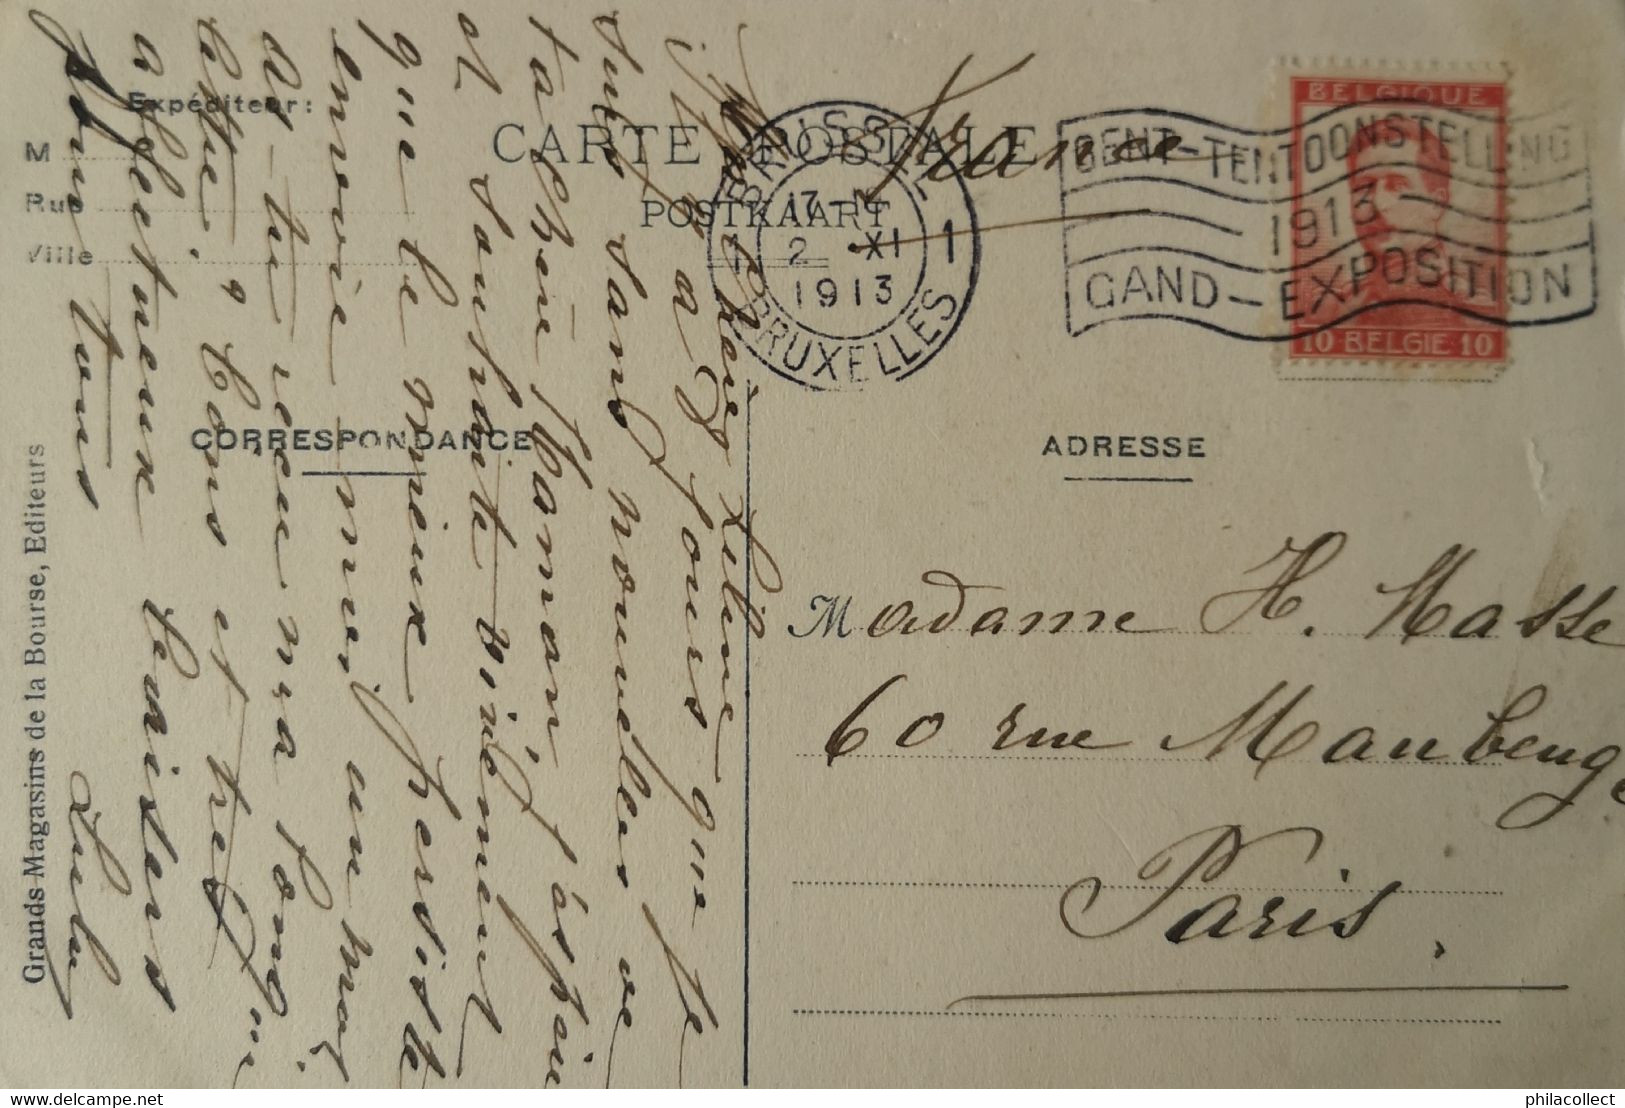 Expéditeur:
M
Rue
Ville
CARTE POSTALE
POSTKAART
France
BRUSSEL
17-N
2 XI
1913
1 1
BRUXELLES
GENT-TENTOONSTELLING
1913
GAND-EXPOSITION
BELGIQUE
10 BELGIE 10
CORRESPONDANCE
ADRESSE
Grands Magasins de la Bourse, Editeurs
Madame H. Masse
60 rue Maubeuge
Paris.
Ma chère
il y a 8 jours que je
suis sans nouvelles de
ta chère maman, j'éspère
et souhaite vivement
que le mieux persiste
envoie moi un mot.
as-tu reçu ma longue
lettre? Bons et très
affectueux baisers
pour tous
Lulu
philacollect
philacollect